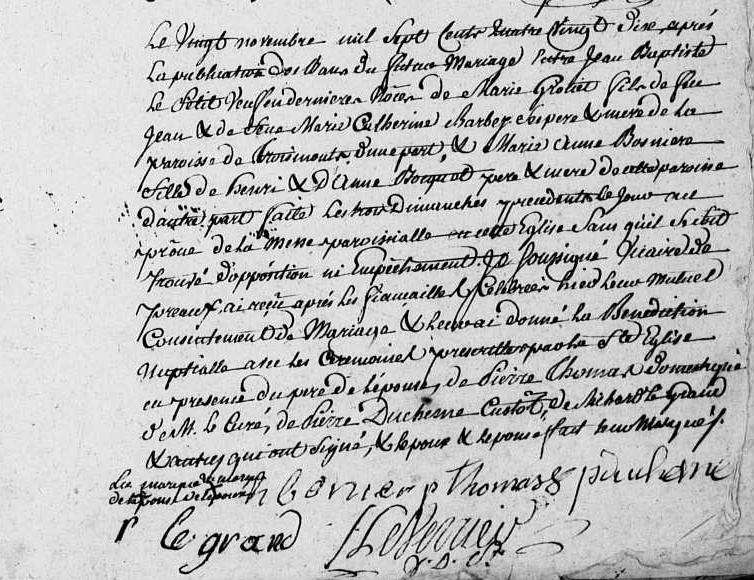 Le Vingt novembre mil Sept Cents quatre Vingt dix après
La publication des Bans du futur Mariage Entre Jean Baptiste
Le Petit Veuf en dernieres Noces de Marie fils de feu
Jean & de feue Marie Catherine Barbey ses pere & mere de la
paroisse de d'une part, & Marie Anne Bosniere
fille de henri & D'Anne Bocquet pere & mere de cette paroisse
d'autre part faite les trois Dimanches precedents le jour au
prône de la Messe paroissialle en cette Eglise Sans qu'il se soit
trouvé d'opposition ni Empêchement. Je Soussigné Vicaire de
preaux, ai reçu après les fiancailles Celebrées hier leur Mutuel
Consentement de Mariage & leur ai donné la Benediction
Nuptialle avec les Ceremonies prescrittes par la Ste Eglise
en presence du pere de l'épouse, de Pierre Thomas domestique
de M. le Curé, de Pierre Duchesne Custos, de le Grand
& autres qui ont Signé, & l'epoux & l'epouse fait leur Marque.
La marque
de l'epouse
thomas p duchene
le grand